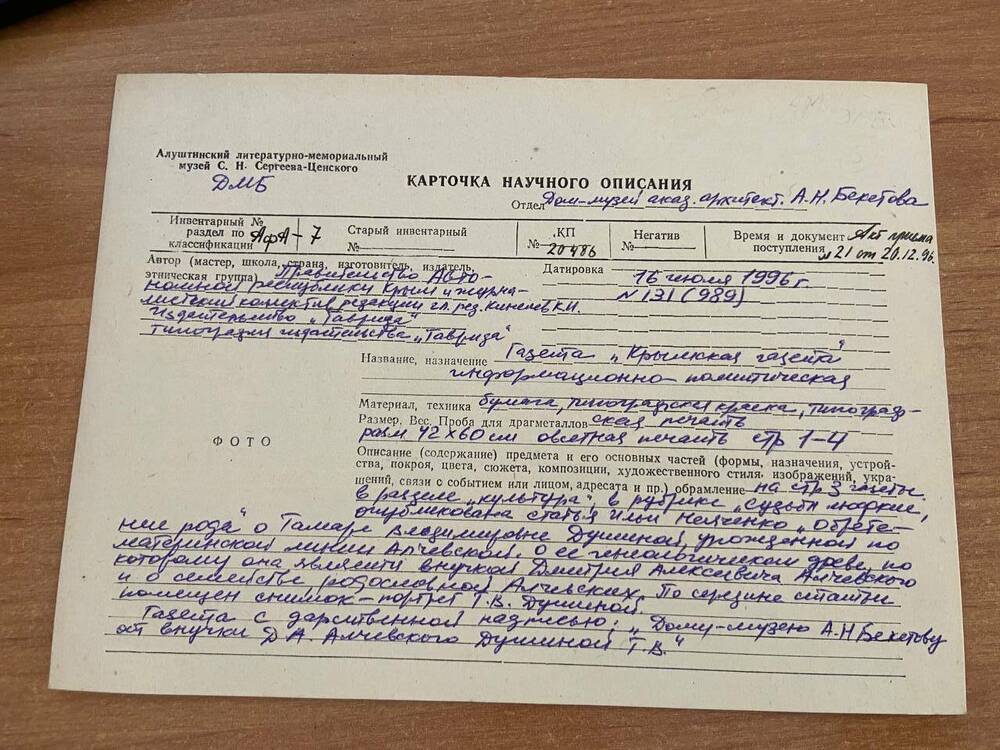 Алуштинский литературно-мемориальный
музей С. Н. Сергеева-Ценского
ДМБ
КАРТОЧКА НАУЧНОГО ОПИСАНИЯ
Отдел Дом-музей акад. архитект. А.Н. Бекетова
Инвентарный №
раздел по
классификации АфА-7
Старый инвентарный
№
КП
20486
Негатив
№
Время и документ Акт приема
поступления №21 от 20.12.96.
Автор (мастер, школа, страна, изготовитель, издатель,
этническая группа) Правительство Авто-
номной республики Крым и журна-
листский колектив редакции гл. ред. К.И.
Издательство „Таврида"
типография издательства „Таврида"
Датировка 16 июля 1996 г
№ 131 (989)
Название, назначение Газета „Крымская газета"
информационно-политическая
Материал, техника бумага, типографская краска, типограф-
ская печать
Размер. Вес. Проба для драгметаллов
разм 42х60 см офсетная печать стр 1-4
ФОТО
Описание (содержание) предмета и его основных частей (формы, назначения, устрой-
ства, покроя, цвета, сюжета, композиции, художественного стиля, изображений, укра-
шений, связи с событием или лицом, адресата и пр.) обрамление на стр 3 газеты
в разделе „культура" в рубрике „Судьбы людские,
опубликована статья Ильи „Обрете-
ние рода" о Тамаре Владимировне Душиной, урожденной по
материнской линии Алчевской. О ее генеалогическом древе, по
которому она является внучкой Дмитрия Алексеевича Алчевского
и о семействе родословной Алчевских. По середине статьи
помещен снимок-портрет Т.В. Душиной.
Газета с дарственной надписью: „Дому-музею А.Н Бекетову
от внучки Д.А. Алчевского Душиной Т.В."